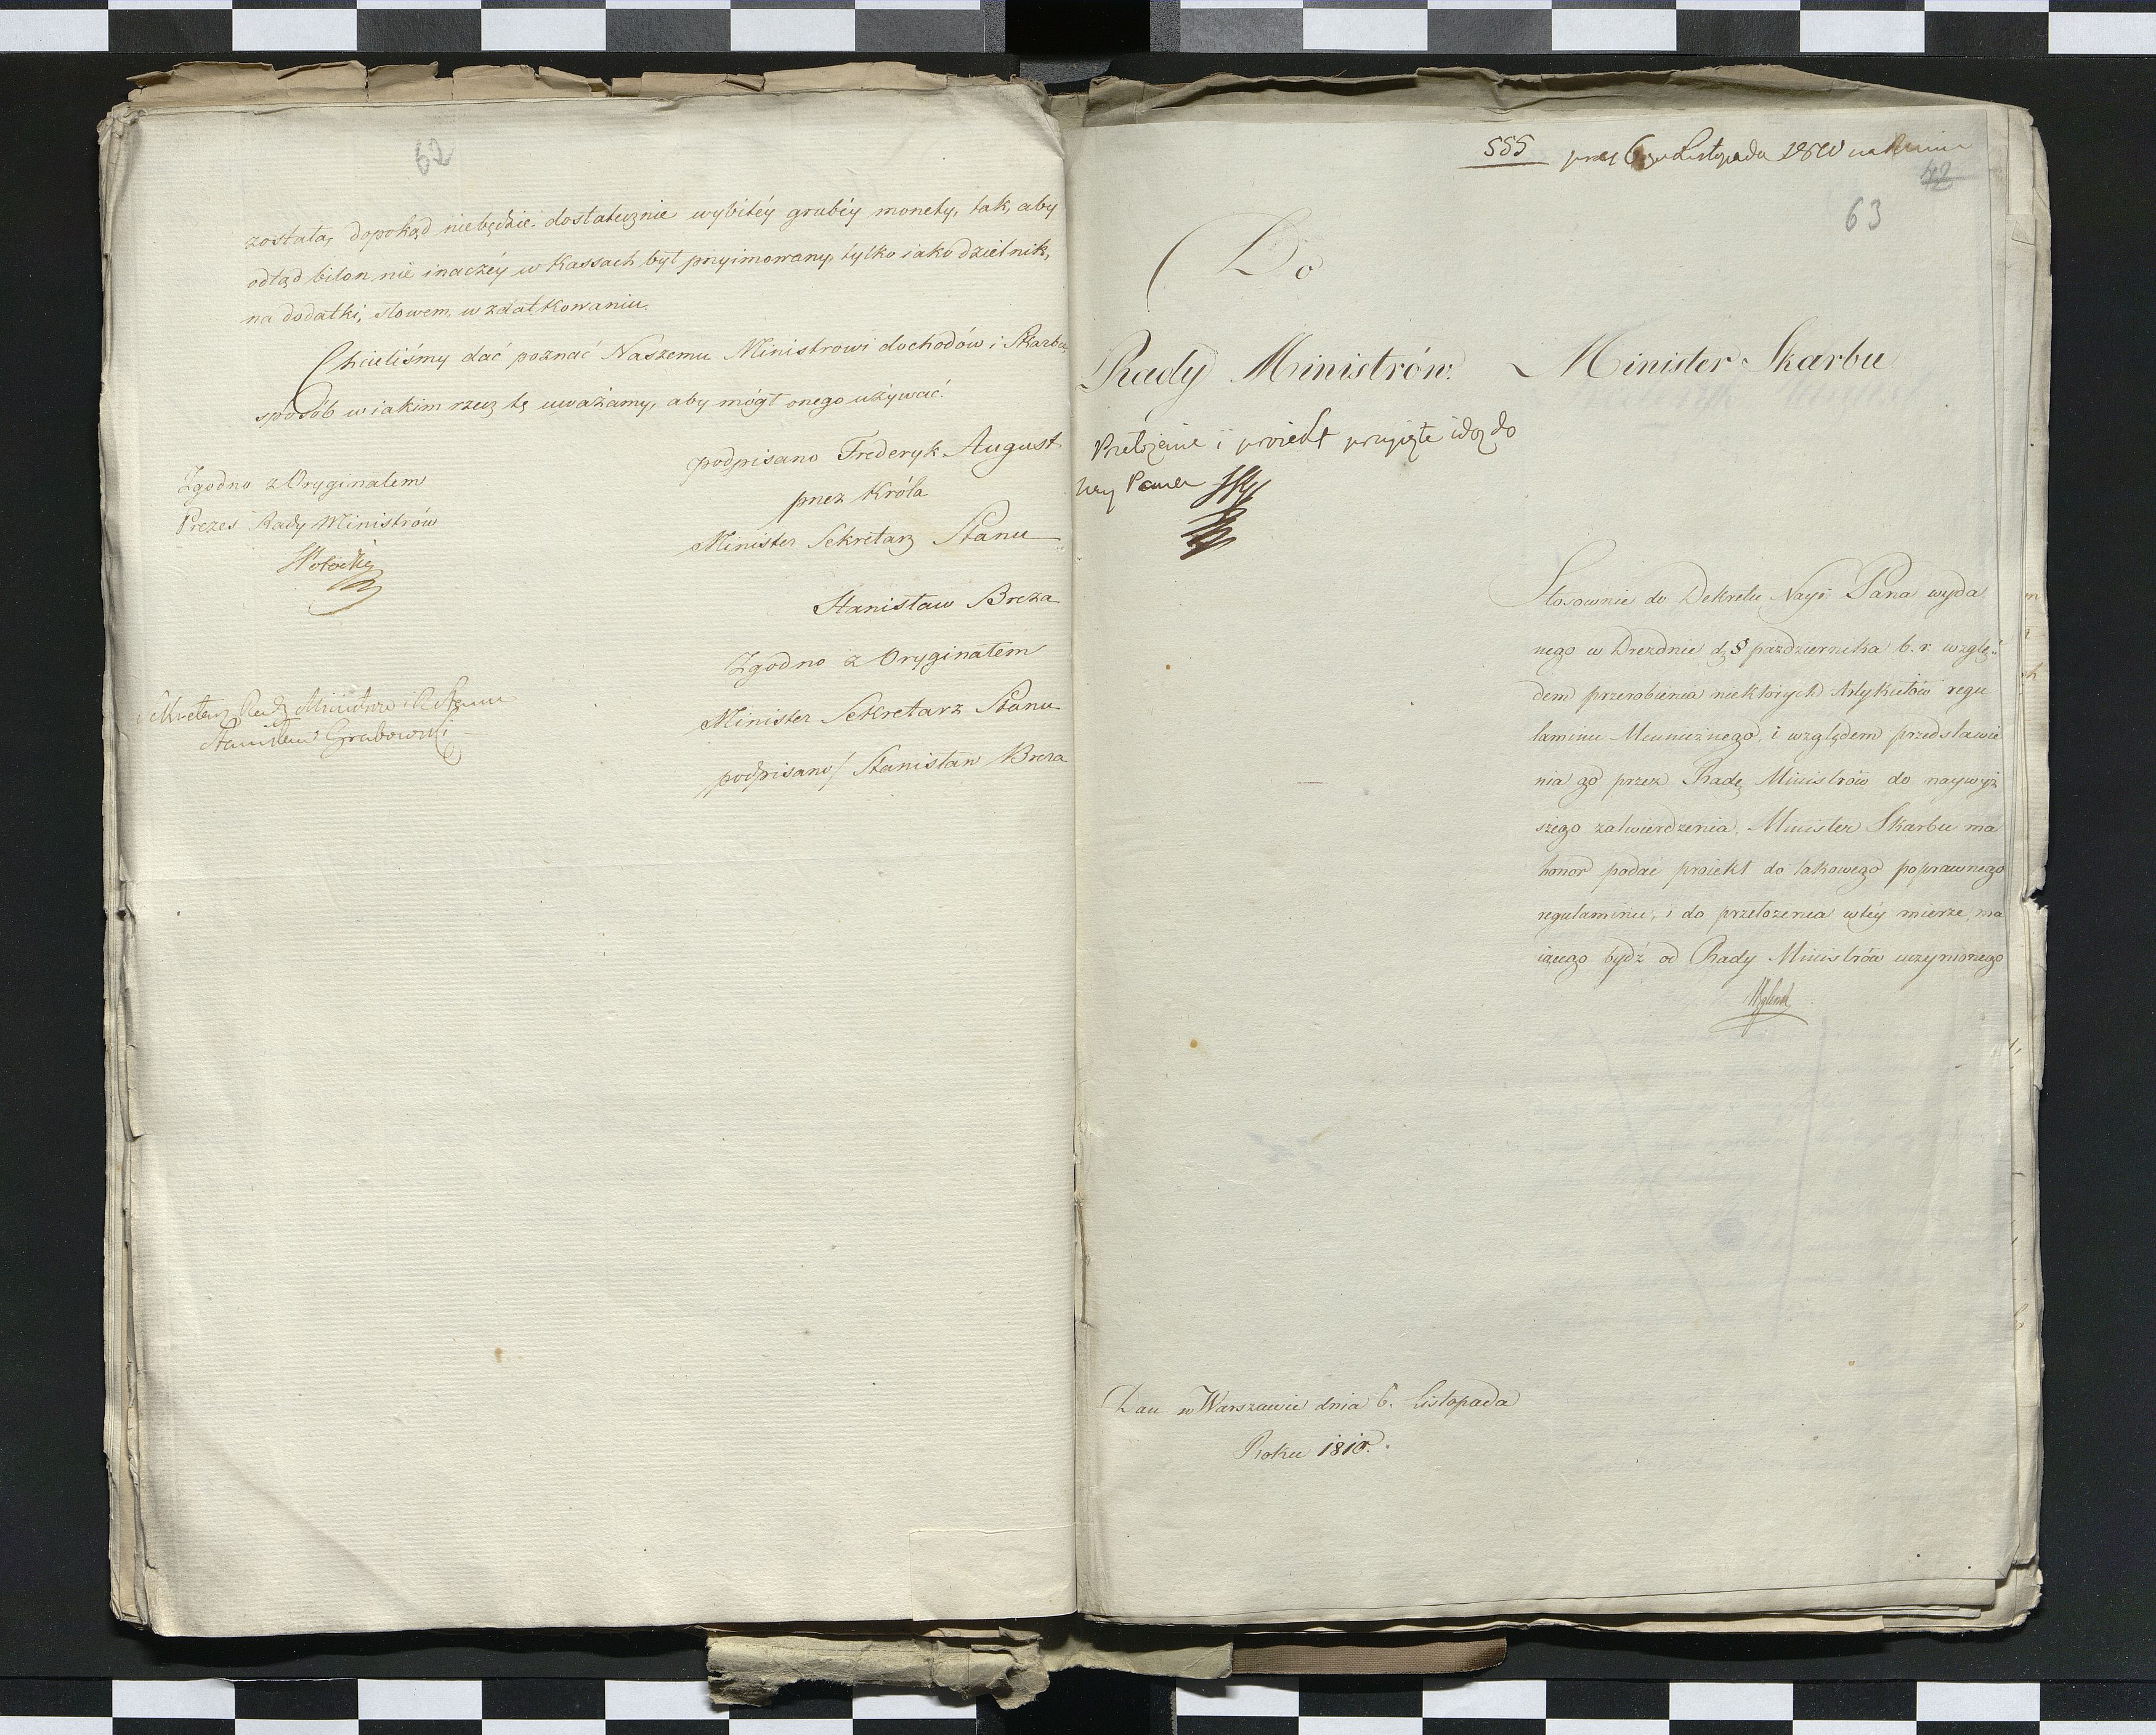 62
została, dopokąd niebędzie dostatecznie wybitéy grubéy monety, tak, aby
odtąd bilon nie inaczéy w Kassach był przyimowany, tylko iako dzielnik,
na dodatki, słowem w zdatkowaniu.
Chcieliśmy dać poznać Naszemu Ministrowi dochodów i Skarbu
sposób w iakim rzecz tę uważamy, aby mógł onego używać.
podpisano Frederyk August
przez Króla
Minister Sekretarz Stanu
Stanisław Breza
Zgodno z Oryginałem
Minister Sekretarz Stanu
podpisano/ Stanisław Breza
Zgodno z Oryginałem
Prezes Rady Ministrów
Sekretarz Rady Ministrów i R. Stanu
Stanisław Grabowski
555 prez 6go Listopada 1810
42
63
Do
Rady Ministrów.
Minister Skarbu
Przełożenie i proiekt przyięte idą do
Nay Pana
Stosownie do Dekretu Nayi: Pana wyda
nego w Dreznie d. 8 października b. r. wzglę-
dem przerobienia niektórych Artykułów regu
laminu Menniznego, i względem przedstawie
nia go przez Radę Ministrów do naywyż
szego zatwierdzenia, Minister Skarbu ma
honor podać proiekt do takowego poprawnego
regulaminu, i do przełożenia w téy mierze ma
iącego bydź od Rady Ministrów uczynionego
Dan w Warszawie dnia 6. Listopada
Roku 1810.